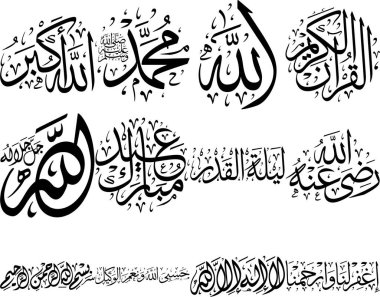 القرآن الكريم
الله
محمد ﷺ
الله أكبر
رضي الله عنه
ليلة القدر
عيد مبارك
الله جل جلاله
اغفرلنا وارحمنا
لا إله إلا الله
حسبي الله ونعم الوكيل
بسم الله الرحمن الرحيم